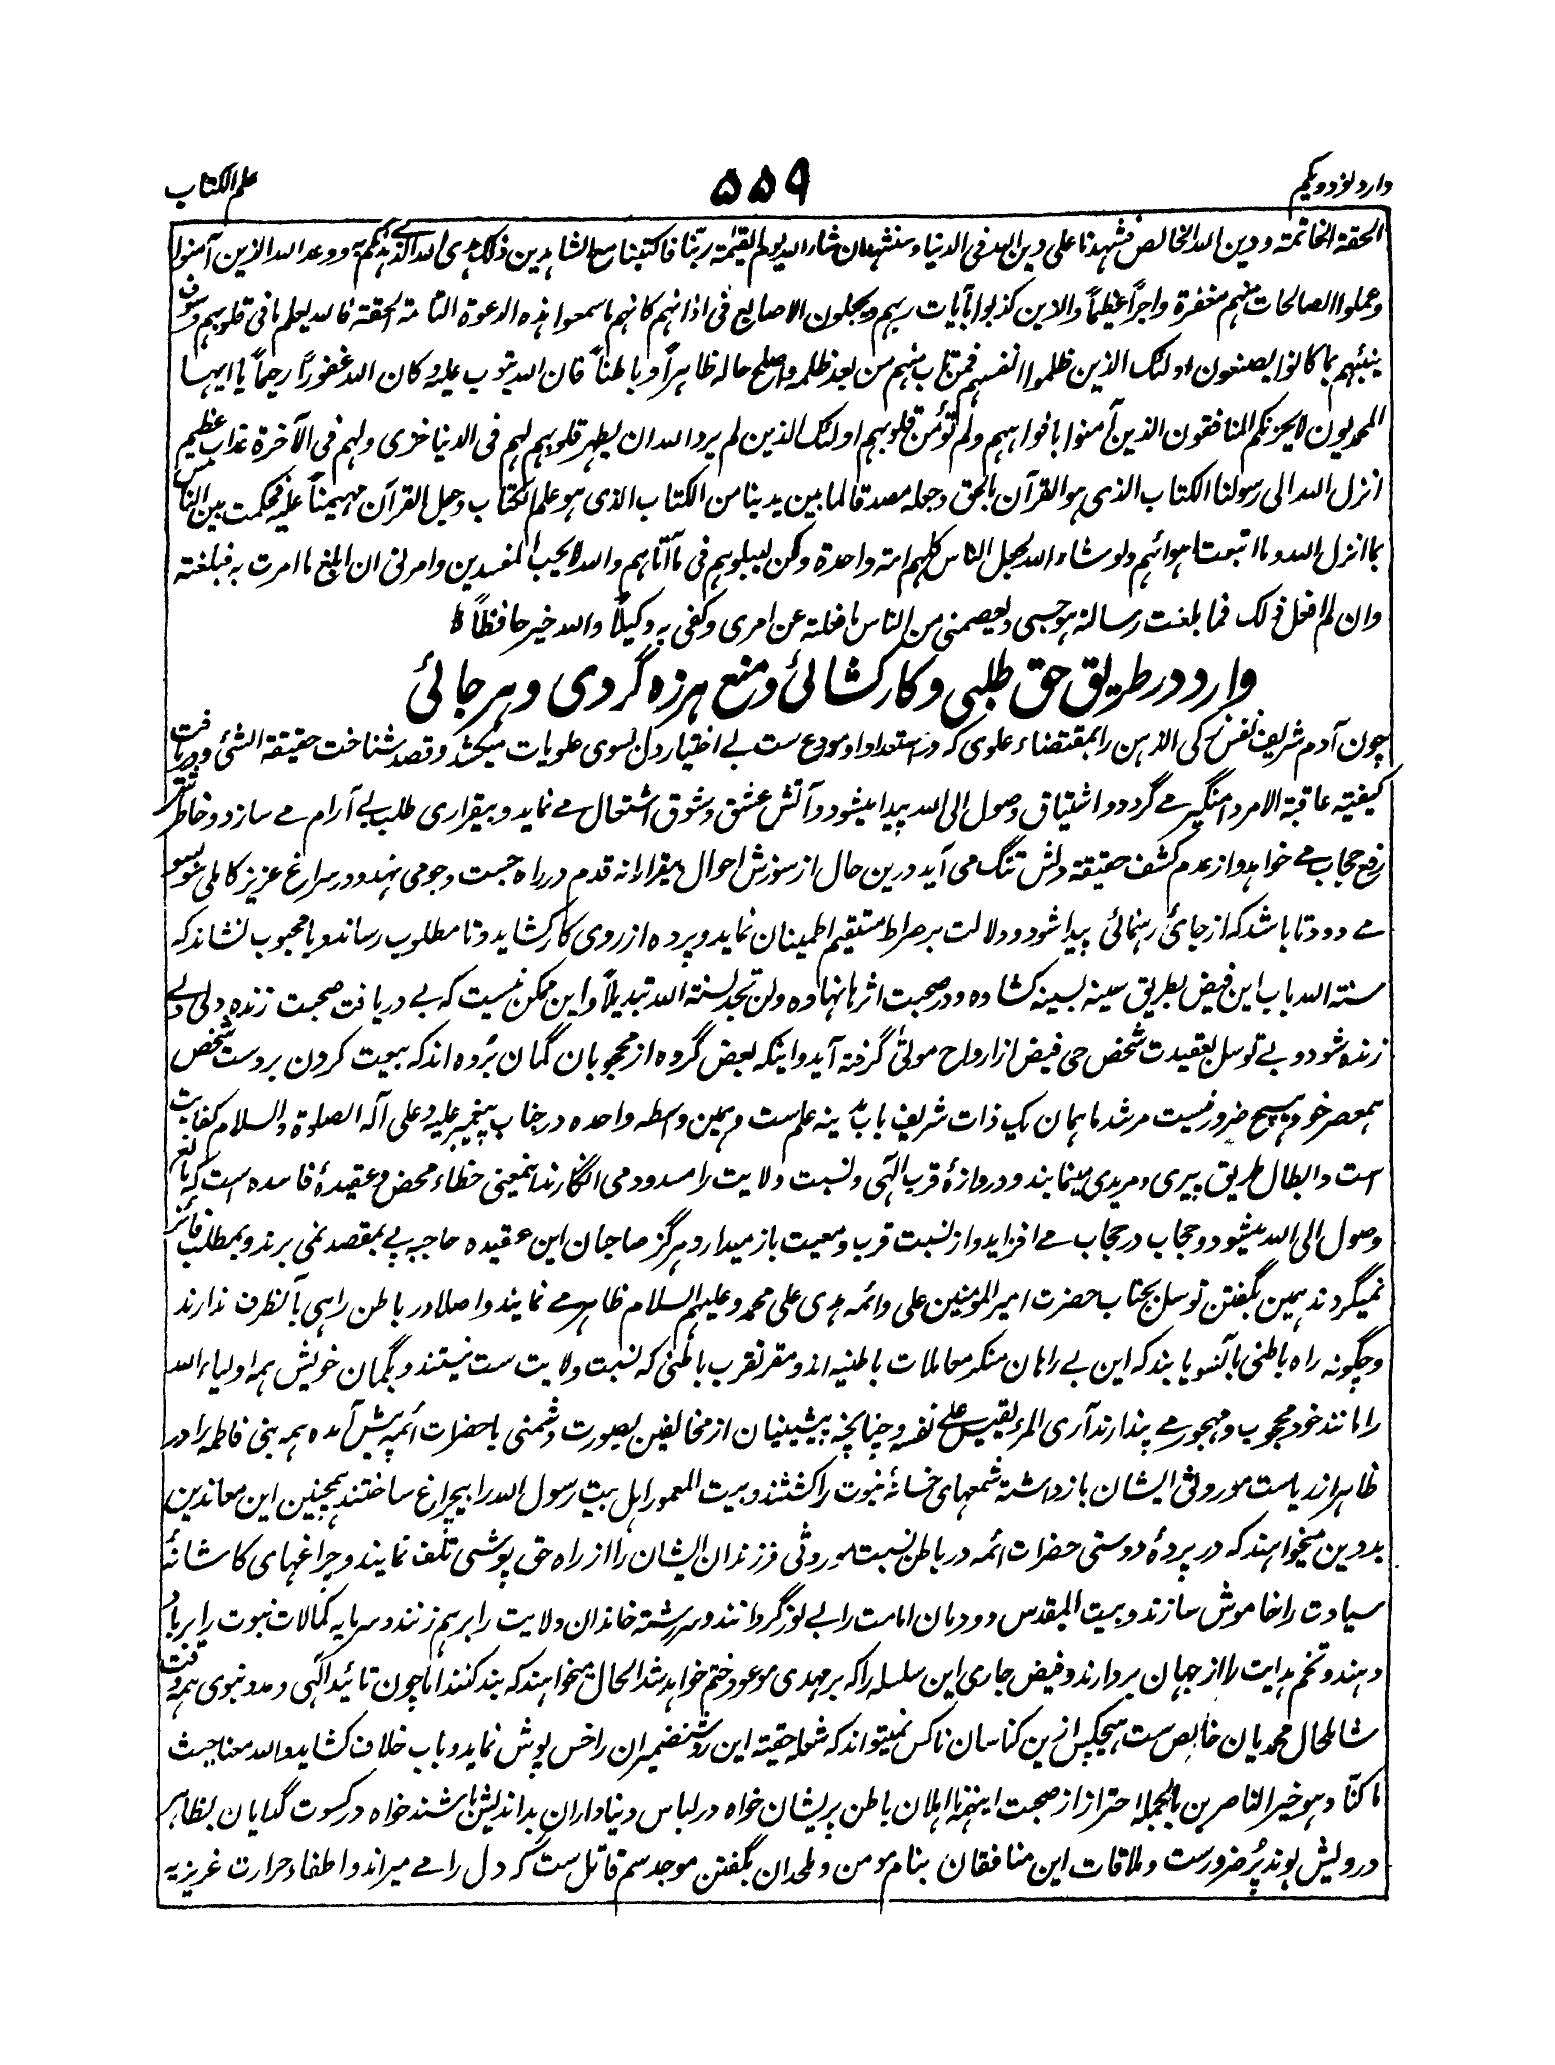 وارد نود و یکم
۵۵۹
علم الکتاب
الحقة الخاتمة و دین الله الخالص فشهدنا علی دین الله فی الدنیا و سنشهد ان شاء الله یوم القیٰمة ربّنا فاکتبنا مع الشاهدین ذلک هدی الله الذی هدٰکم به و وعد الله الذین آمنوا
و عملوا الصالحات منهم مغفرة و اجراً عظیماً والذین کذبوا بآیات ربهم و یجعلون الاصابع فی اذانهم کانهم ما سمعوا هذه الدعوة التامة الحقة فالله یعلم ما فی قلوبهم و سوف
ینبئهم بما کانوا یصنعون اولئک الذین ظلموا انفسهم فمن تاب منهم من بعد ظلمه و اصلح حاله ظاهراً و باطناً فان الله یتوب علیه و کان الله غفوراً رحیماً یا ایها
المحمدیون لا یحزنکم المنافقون الذین آمنوا بافواههم و لم تؤمن قلوبهم اولئک الذین لم یرد الله ان یطهر قلوبهم لهم فی الدنیا خزی و لهم فی الآخرة عذاب عظیم
انزل الله الی رسولنا الکتاب الذی هو القرآن بالحق و جعله مصدقا لما بین یدینا من الکتاب الذی هو علم الکتاب و جعل القرآن مهیمناً علیه فحکمت بین الناس
بما انزل الله و ما اتبعت اهوائهم و لو شاء الله لجعل الناس کلهم امة واحدة و لکن لیبلوهم فی ما آتاهم والله لا یحب المفسدین و امرنی ان ابلغ ما امرت به فبلغته
و ان لم افعل ذلک فما بلغت رسالته هو حسبی و یعصمنی من الناس ما فعلته عن امری و کفی به وکیلاً والله خیر حافظاً
وارد در طریق حق طلبی و کارکشائی و منع هرزه گردی و هر جائی
چون آدم شریف نفس زکی الذهن را بمقتضاء علوی که در استعداد او مودع ست بے اختیار دل بسوی علویات میکشد و قصد شناخت حقیقة الشئ و دریافت
کیفیته عاقبة الامر دامنگیر مے گردد و اشتیاق وصول الی الله پیدا میشود و آتش عشق و شوق اشتعال مے نماید و بیقراری طلب بے آرام مے سازد و خاطر
رفع حجاب مے خواهد و از عدم کشف حقیقة دلش تنگ می آید درین حال از سوزش احوال بیقرارانه قدم در راه جست و جو می نهد و در سراغ عزیز کاملی هر سو
مے دود تا باشد که از جائ رهنمائی پیدا شود و دلالت بر صراط مستقیم اطمینان نماید و پرده از روی کار کشاید و تا مطلوب رساند و با محبوب نشاند که
سنته الله باب این فیض بطریق سینه بسینه کشاده و در صحبت اثرها نهاده ولن تجد لسنة الله تبدیلاً و این ممکن نیست که بے دریافت صحبت زنده دلی دلے
زنده شود و بے توسل بعقیدت شخص حی فیض از ارواح موتیٰ گرفته آید و اینکه بعض گروه از محجوبان گمان بُرده اند که بیعت کردن بر دست شخص
همعصر خود هیچ ضرور نیست مرشد ما همان یک ذات شریف باب مدینه علم ست و همین واسطه واحده در جناب پیغمبر علیه و علی آله الصلوة والسلام کفایت
است و ابطال طریق پیری و مریدی مینمایند و دروازهٔ قرب الٓهی و نسبت ولایت را مسدود می انگارند اینمعنی خطاء محض و عقیدهٔ فاسده است که مانع
وصول الی الله میشود و حجاب در حجاب مے افزاید و از نسبت قرب و معیت باز میدارد و هرگز صاحبان این عقیده حاجبه پے بمقصد نمی برند و بمطلب فائز
نمیگردند همین بگفتن توسل بجناب حضرت امیر المومنین علی و ائمه هدی علی محمد و علیهم السلام ظاهر مے نمایند و اصلا در باطن راهی بآنطرف ندارند
و چگونه راه باطنی بآنسو یابند که این بے راهان منکر معاملات باطنیه اند و مقر تقرب باطنی که نسبت ولایت ست نیستند و بگمان خویش همه اولیاء الله
را مانند خود محجوب و مهجور مے پندارند آری المرء یقیس علی نفسه و چنانچه پیشینیان از مخالفین بصورت دشمنی با حضرات ائمه پیش آمده همه بنی فاطمه را در
ظاهر از ریاست موروثی ایشان باز داشته شمعهای خانهٔ نبوت را کشتند و بیت المعمور اهل بیت رسول الله را بیچراغ ساختند همچنین این معاندین
بددین میخواهند که در پردهٔ دوستی حضرات ائمه در باطن نسبت موروثی فرزندان ایشان را از راه حق پوشی تلف نمایند و چراغهای کاشانهٔ
سیادت را خاموش سازند و بیت المقدس دودمان امامت را بے نور گردانند و سررشته خاندان ولایت را بر هم زنند و سرمایه کمالات نبوت را برباد
دهند و تخم هدایت را از جهان بردارند و فیض جاری این سلسله را که بر مهدی موعود ختم خواهد شد الحال میخواهند که بند کنند اما چون تائید الٓهی و مدد نبوی همه وقت
شاملحال محمدیان خالص ست هیچکس ازین کناسان ناکس نمیتواند که شعله حقیته این روشنضمیران را خس پوش نماید و باب خلاف کشاید والله معنا حیث
ما کنّا و هو خیر الناصرین بالجمله احتراز از صحبت اینهمه نااهلان باطن پریشان خواه در لباس دنیاداران بداندیش باشند خواه در کسوت گدایان بظاهر
درویش بوند پُر ضرورست و ملاقات این منافقان بنام مومن و ملحدان بگفتن موحد سم قاتل ست که دل را مے میراند و اطفاء حرارت غریزیه